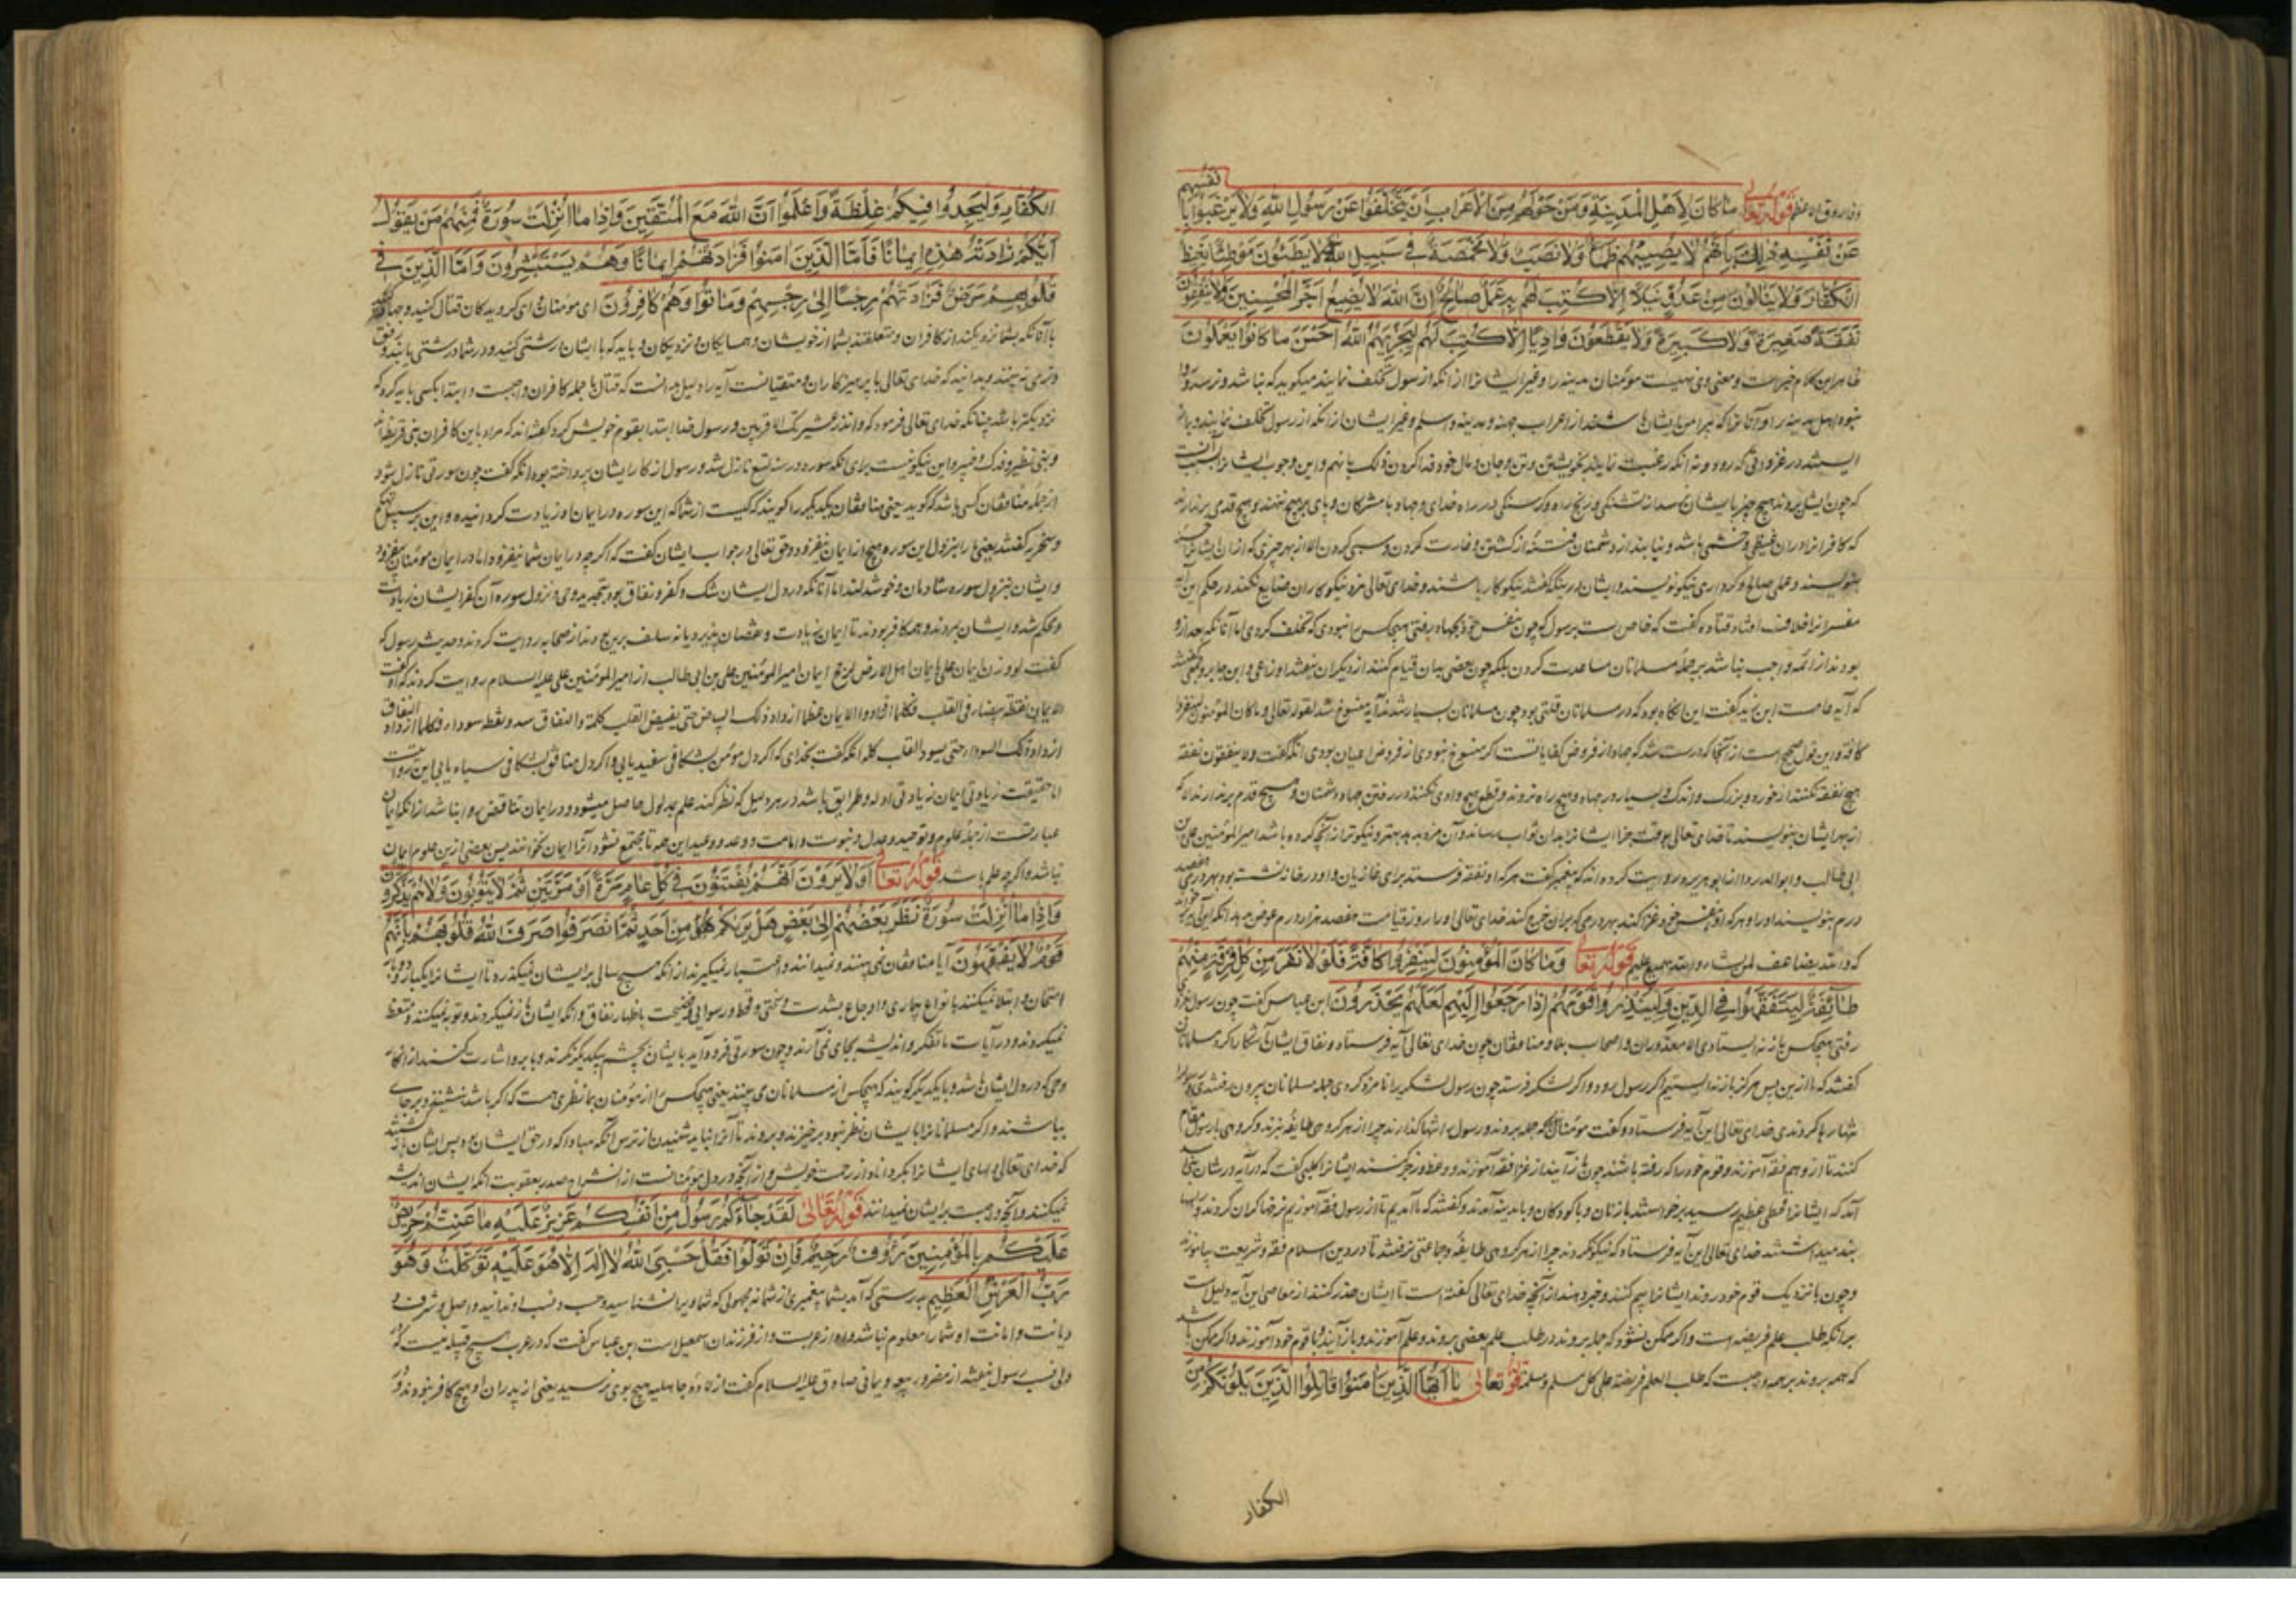 وفاروق اعظم قوله تعالی مَا كَانَ لِأَهْلِ الْمَدِينَةِ وَمَنْ حَوْلَهُمْ مِنَ الْأَعْرَابِ أَنْ يَتَخَلَّفُوا عَنْ رَسُولِ اللهِ وَلَا يَرْغَبُوا بِأَنْفُسِهِمْ
عَنْ نَفْسِهِ ذٰلِكَ بِأَنَّهُمْ لَا يُصِيبُهُمْ ظَمَأٌ وَلَا نَصَبٌ وَلَا مَخْمَصَةٌ فِي سَبِيلِ اللهِ وَلَا يَطَئُونَ مَوْطِئًا يَغِيظُ
الْكُفَّارَ وَلَا يَنَالُونَ مِنْ عَدُوٍّ نَيْلًا إِلَّا كُتِبَ لَهُمْ بِهِ عَمَلٌ صَالِحٌ إِنَّ اللهَ لَا يُضِيعُ أَجْرَ الْمُحْسِنِينَ وَلَا يُنْفِقُونَ
نَفَقَةً صَغِيرَةً وَلَا كَبِيرَةً وَلَا يَقْطَعُونَ وَادِيًا إِلَّا كُتِبَ لَهُمْ لِيَجْزِيَهُمُ اللهُ أَحْسَنَ مَا كَانُوا يَعْمَلُونَ
ظاهر این کلام خبر است و معنی وی نهیست مؤمنان مدینه را و غیر ایشانرا از انکه از رسول تخلف نمایند میکوید که نباشد و نرسد
اهل مدینه را و آنانرا که پیرامن ایشان باشند از اعراب جهینه و مدینه و اسلم و غیر ایشان از انکه از رسول تخلف نمایند
ایستند در غزواتی که رود و نه انکه رغبت نمایند بخویشتن و تن و جان و مال خود فدا کردن ذلک بانهم و این وجوب ایشانرا
که چون ایشان بروند هیچ چیز بایشان نرسد از تشنکی و رنج راه و کرسنکی در راه خدای و جهاد با مشرکان و پای بر هیچ ننهند و هیچ قدمی برندارند
که کافرانرا در ان غیظی و خشمی باشد و نیابند از دشمنان از کشتن و غارت کردن و سبی کردن الا از بهر چیزی که از ان ایشانرا
بنویسند و عملی صالح و کرداری نیکو نویسند و ایشان نیکوکار باشند و خدای تعالی مزد نیکوکاران ضایع نکند و در حکم این آیه
مفسرانرا خلاف افتاد قتاده کفت که خاص است برسول که چون بنفس خود بجهاد رفتی هیچکس را نبودی که تخلف کردی اما آنانکه بعد از و
بودند از ائمه واجب نباشد بر جمله مسلمانان مساعدت کردن بلکه چون بعضی بدان قیام کنند از دیکران بیفتد اوزاعی و ابن جابر
که آیه عامست ابن زید کفت این انکاه بود که در مسلمانان قلتی بود چون مسلمانان بسیار شدند آیه منسوخ شد لقوله تعالی و ما کان المؤمنون لینفروا
کافة و این قول صحیح است از آنجا که درست شد که جهاد از فروض کفایاتست اکر منسوخ نبودی از فروض اعیان بودی انکه کفت و لا ینفقون نفقة
هیچ نفقه نکنند از خورد و بزرک و اندک و بسیار در جهاد و هیچ راه نروند و قطع هیچ وادی نکنند در رفتن جهاد دشمنان و هیچ قدم برندارند الا که
از بهر ایشان بنویسند تا خدای تعالی بوقت جزا ایشانرا بدان ثواب رساند و آن مزد بدهد بهتر و نیکوتر از آنچه کرده باشد امیر المؤمنین علی بن
ابی طالب و ابوالدردا و ابو هریره روایت کرده اند که پیغمبر کفت هر که او نفقه فرستد برای غازیان و او در خانه نشسته بود بهر درمی هفتصد
درم بنویسند او را و هر که او بنفس خود غزا کند بهر درمی که بران خرج کند خدای تعالی او را روز قیامت هفصد هزار درم عوض بدهد انکه این آیه بر خواند
که والله یضاعف لمن یشاء والله سمیع علیم قوله تعالی وَمَا كَانَ الْمُؤْمِنُونَ لِيَنْفِرُوا كَافَّةً فَلَوْلَا نَفَرَ مِنْ كُلِّ فِرْقَةٍ مِنْهُمْ
طَائِفَةٌ لِيَتَفَقَّهُوا فِي الدِّينِ وَلِيُنْذِرُوا قَوْمَهُمْ إِذَا رَجَعُوا إِلَيْهِمْ لَعَلَّهُمْ يَحْذَرُونَ ابن عباس کفت چون رسول بغزو
رفتی هیچکس باز نه ایستادی الا معذوران و اصحاب بلا و منافقان چون خدای تعالی آیه فرستاد و نفاق ایشان آشکارا کرد مسلمانان
کفتند که ما ازین پس هرکز باز نه ایستیم اکر رسول برود و اکر لشکر فرستد چون رسول لشکر را نامزد کردی جمله مسلمانان بیرون رفتندی
تنها رها کردندی خدای تعالی این آیه فرستاد و کفت مؤمنان که جمله بروند و رسول را تنها کذارند چرا از هر کروهی طایفه نروند و کروهی با رسول مقام
کنند تا از و هم فقه آموزند و قوم خود را که رفته باشند چون باز آیند از غزا فقه آموزند و وعظ و زجر کنند ایشانرا کلبی کفت که در آیه در شان بنی اسد
آمد که ایشانرا قحطی عظیم رسید برخواستند با زنان و با کودکان و با مدینه آمدند و کفتند که ما آمدیم تا از رسول فقه آموزیم نرخها کران کردند
بند میداشتند خدای تعالی این آیه فرستاد که نیکو نکردند چرا از هر کروهی طایفه و جماعتی نرفتند تا در دین اسلام فقه و شریعت بیاموزند
و چون با نزدیک قوم خود روند ایشانرا بیم کنند و خبر دهند از آنچه خدای تعالی کفته است تا ایشان حذر کنند از معاصی این آیه دلیل است
برانکه طلب علم فریضه است و اکر ممکن نشود که جمله بروند در طلب علم بعضی بروند و علم آموزند و باز آیند و با قوم خود آموزند و اکر ممکن باشد
که همه بروند بر همه واجبست که طلب العلم فریضة علی کل مسلم و مسلمة قوله تعالی يَا أَيُّهَا الَّذِينَ آمَنُوا قَاتِلُوا الَّذِينَ يَلُونَكُمْ مِنَ
الکفار
الْكُفَّارِ وَلْيَجِدُوا فِيكُمْ غِلْظَةً وَاعْلَمُوا أَنَّ اللهَ مَعَ الْمُتَّقِينَ وَإِذَا مَا أُنْزِلَتْ سُورَةٌ فَمِنْهُمْ مَنْ يَقُولُ
أَيُّكُمْ زَادَتْهُ هٰذِهِ إِيمَانًا فَأَمَّا الَّذِينَ آمَنُوا فَزَادَتْهُمْ إِيمَانًا وَهُمْ يَسْتَبْشِرُونَ وَأَمَّا الَّذِينَ فِي
قُلُوبِهِمْ مَرَضٌ فَزَادَتْهُمْ رِجْسًا إِلَى رِجْسِهِمْ وَمَاتُوا وَهُمْ كَافِرُونَ ای مؤمنان ای کرویدکان قتال کنید و جهاد کنید
با آنانکه بشما نزدیکند از کافران و متعلقند بشما از خویشان و همسایکان و نزدیکان و باید که با ایشان درشتی کنید و در شما درشتی یابند و رفق
و نرمی نه بینند و بدانید که خدای تعالی با پرهیزکاران و متقیانست آیه را دلیل بدانست که قتال با جمله کافران واجبست و ابتدا بکسی باید کرد که
نزدیکتر باشد چنانکه خدای تعالی فرمود که وانذر عشیرتک الاقربین و رسول خدا ابتدا بقوم خویش کرد و کفته اند که مراد باین کافران بنی قریظه اند
و بنی نظیر و فدک و خیبر و این نیکو نیست برای انکه سوره در سنه تسع نازل شد و رسول از کار ایشان پرداخته بود انکه کفت چون سورتی نازل شود
از جمله منافقان کسی باشد که کوید یعنی منافقان یکدیکر را کویند که کیست از شما که این سوره در ایمان او زیادت کردانیده و این بر سبیل تهکم
و سخریه کفتند یعنی ما را بنزول این سوره هیچ از ایمان نیفزود و حق تعالی در جواب ایشان کفت که اکر چه در ایمان شما نیفزود اما در ایمان مؤمنان بیفزود
و ایشان بنزول سوره شادمان و خوشدلند اما آنانکه در دل ایشان شک و کفر و نفاق بود بتجدید وحی و نزول سوره آن کفر ایشان زیادت
و محکم شد و ایشان بمردند و همه کافر بودند تا ایمان زیادت و نقصان پذیرد یا نه سلف برین چند از صحابه روایت کردند و حدیث رسول که
کفت لو وزن ایمان علی بایمان اهل الارض لرجح ایمان امیر المؤمنین علی بن ابی طالب از امیر المؤمنین علی علیه السلام روایت کردند که او کفت
الایمان نقطة بیضاء فی القلب فکلما ازداد الایمان عظما ازداد ذلک البیاض حتی یبیض القلب کله و النفاق نقطة سوداء فکلما ازداد النفاق
ازداد ذلک السواد حتی یسود القلب کله انکه کفت بخدای که اکر دل مؤمن بشکافی سفید یابی و اکر دل منافق بشکافی سیاه یابی
اما حقیقت زیادتی ایمان زیادتی ادله و طرایق باشد در هر دلیل که نظر کنند علم بمدلول حاصل میشود و در ایمان تناقض روا نباشد از انکه ایمان
عبارتست از جمله علوم و توحید و عدل و نبوت و امامت و وعد و وعید این همه تا مجتمع نشود آنرا ایمان نخوانند پس بعضی ازین علوم ایمان
نباشد و اکر چه علم باشد قوله تعالی أَوَلَا يَرَوْنَ أَنَّهُمْ يُفْتَنُونَ فِي كُلِّ عَامٍ مَرَّةً أَوْ مَرَّتَيْنِ ثُمَّ لَا يَتُوبُونَ وَلَا هُمْ يَذَّكَّرُونَ
وَإِذَا مَا أُنْزِلَتْ سُورَةٌ نَظَرَ بَعْضُهُمْ إِلَى بَعْضٍ هَلْ يَرَاكُمْ مِنْ أَحَدٍ ثُمَّ انْصَرَفُوا صَرَفَ اللهُ قُلُوبَهُمْ بِأَنَّهُمْ
قَوْمٌ لَا يَفْقَهُونَ آیا منافقان نمی بینند و نمیدانند و اعتبار نمیکیرند از انکه هیچ سالی بر ایشان نمیکذرد تا ایشانرا یکبار و دو بار
امتحان و ابتلا نمیکنند بانواع بیماری و اوجاع بشدت و سختی و قحط و رسوایی و فضیحت باظهار نفاق و انکه ایشان باز نمیکردند و توبه نمیکنند و متعظ
نمیکردند و در آیات ما تفکر و اندیشه بجای نمی آرند و چون سورتی فرود آید بایشان بچشم بیکدیکر نکرند و بابرو اشارت کنند از انکار
وحی که در دل ایشان باشد و با یکدیکر کویند که هیچکس از مسلمانان می بیند یعنی هیچکس را از مؤمنان بما نظری هست که اکر باشد بنشیند و بر جای
بباشند و اکر مسلمانانرا بایشان نظر نبود برخیزند و بروند تا آنرا نباید شنیدن از ترس انکه مبادا که در حق ایشان بود پس ایشان باز کشتند
که خدای تعالی دلهای ایشانرا بکرداناد از رحمت خویش و از آنچه در دل مؤمنانست از انشراح صدر بعقوبت انکه ایشان اندیشه
نمیکنند و آنچه واجبست بر ایشان نمیدانند قوله تعالی لَقَدْ جَاءَكُمْ رَسُولٌ مِنْ أَنْفُسِكُمْ عَزِيزٌ عَلَيْهِ مَا عَنِتُّمْ حَرِيصٌ
عَلَيْكُمْ بِالْمُؤْمِنِينَ رَءُوفٌ رَحِيمٌ فَإِنْ تَوَلَّوْا فَقُلْ حَسْبِيَ اللهُ لَا إِلٰهَ إِلَّا هُوَ عَلَيْهِ تَوَكَّلْتُ وَهُوَ
رَبُّ الْعَرْشِ الْعَظِيمِ بدرستی که آمد بشما پیغمبری از شما نه مجهولی که شما ویرا نشناسید و حسب و نسب او ندانید و اصل و شرف و
دیانت و امانت او شما را معلوم نباشد و او از عربست و از فرزندان اسمعیل است ابن عباس کفت که در عرب هیچ قبیله نیست که
و الی نسب رسول نیفتد از مضر و ربیعه و یمانی صادق علیه السلام کفت از ولادة جاهلیه هیچ بوی نرسید یعنی از پدران او هیچ کافر نبودند و